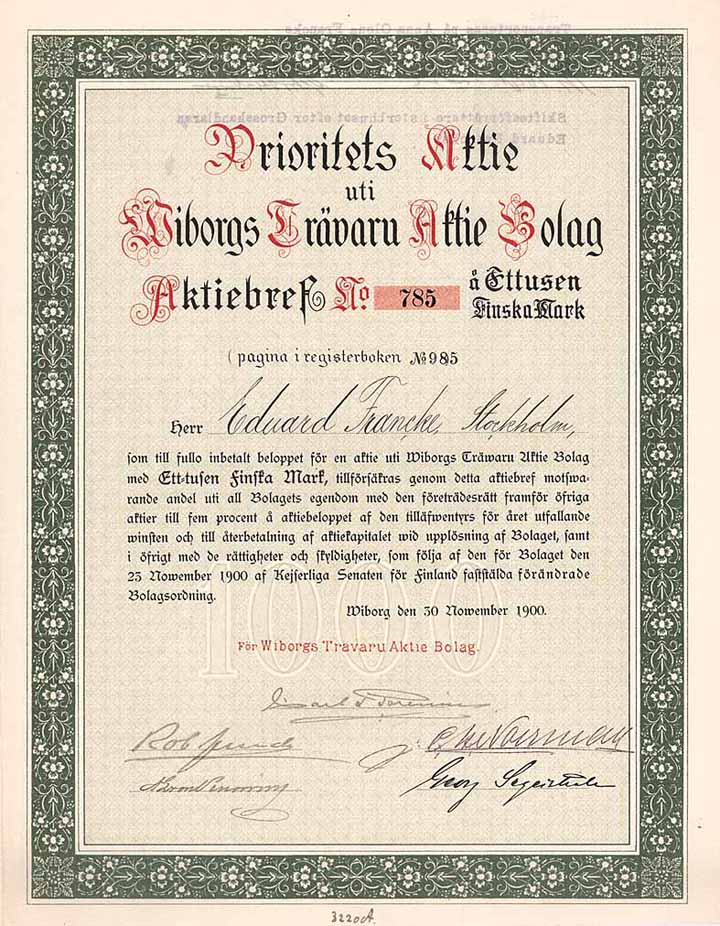 Prioritets Aktie
uti
Wiborgs Trävaru Aktie Bolag
Aktiebref No 785 å Ettusen
Finska Mark
(pagina i registerboken No 985
Herr Eduard Francke, Stockholm,
som till fullo inbetalt beloppet för en aktie uti Wiborgs Trävaru Aktie Bolag
med Ett-tusen Finska Mark, tillförsäkras genom detta aktiebref motswa-
rande andel uti all Bolagets egendom med den företrädesrätt framför öfriga
aktier till fem procent å aktiebeloppet af den tilläfwentyrs för året utfallande
winsten och till återbetalning af aktiekapitalet wid upplösning af Bolaget, samt
i öfrigt med de rättigheter och skyldigheter, som följa af den för Bolaget den
23 November 1900 af Kejserliga Senaten för Finland fastställda förändrade
Bolagsordning.
Wiborg den 30 November 1900.
1000
För Wiborgs Travaru Aktie Bolag.
Georg
3220A.